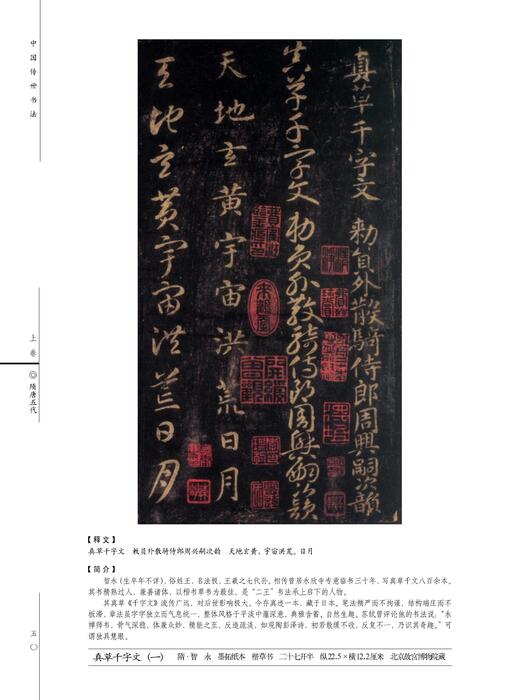 中国传世书法
上卷◎隋唐五代
五〇
真草千字文 勅員外散騎侍郎周興嗣次韻
真草千字文 勅員外散騎侍郎周興嗣次韻
天地玄黄宇宙洪荒日月
天地玄黄宇宙洪荒日月
【释文】
真草千字文 敕员外散骑侍郎周兴嗣次韵 天地玄黄，宇宙洪荒。日月
【简介】
智永（生卒年不详），俗姓王，名法极，王羲之七代孙。相传曾居永欣寺专意临书三十年，写真草千文八百余本。
其书精熟过人，兼善诸体，以楷书草书为最佳，是“二王”书法承上启下的人物。
其真草《千字文》流传广远，对后世影响极大。今存真迹一本，藏于日本。笔法精严而不拘谨，结构端庄而不
板滞，章法虽字字独立而气息统一，整体风格于平淡中蕴深意，典雅含蓄，自然生趣。苏轼曾评论他的书法说：“永
禅师书，骨气深稳，体兼众妙，精能之至，反造疏淡，如观陶彭泽诗，初若散缓不收，反复不一，乃识其奇趣。”可
谓独具慧眼。
真草千字文（一） 隋·智永 墨拓纸本 楷草书 二十七开半 纵22.5×横12.2厘米 北京故宫博物院藏